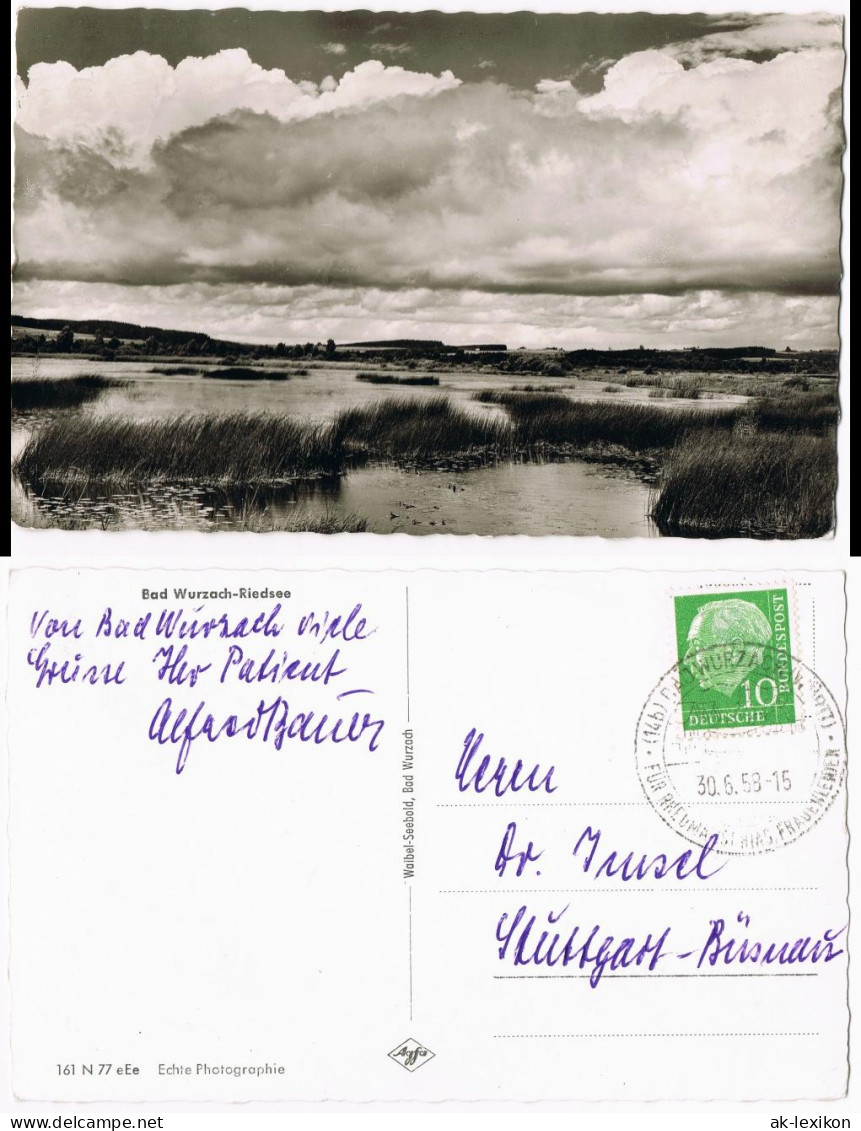 Bad Wurzach-Riedsee
Von Bad Wurzach viele
Grüsse Ihr Patient
Alfred Bauer
Waibel-Seebold, Bad Wurzach
DEUTSCHE
BUNDESPOST
10
(14b) BAD WURZACH
30.6.58-15
FÜR RHEUMA, ISCHIAS, FRAUENLEIDEN
Herrn
Dr. Imsel
Stuttgart-Büsnau
Agfa
161 N 77 eEe Echte Photographie
ak-lexikon